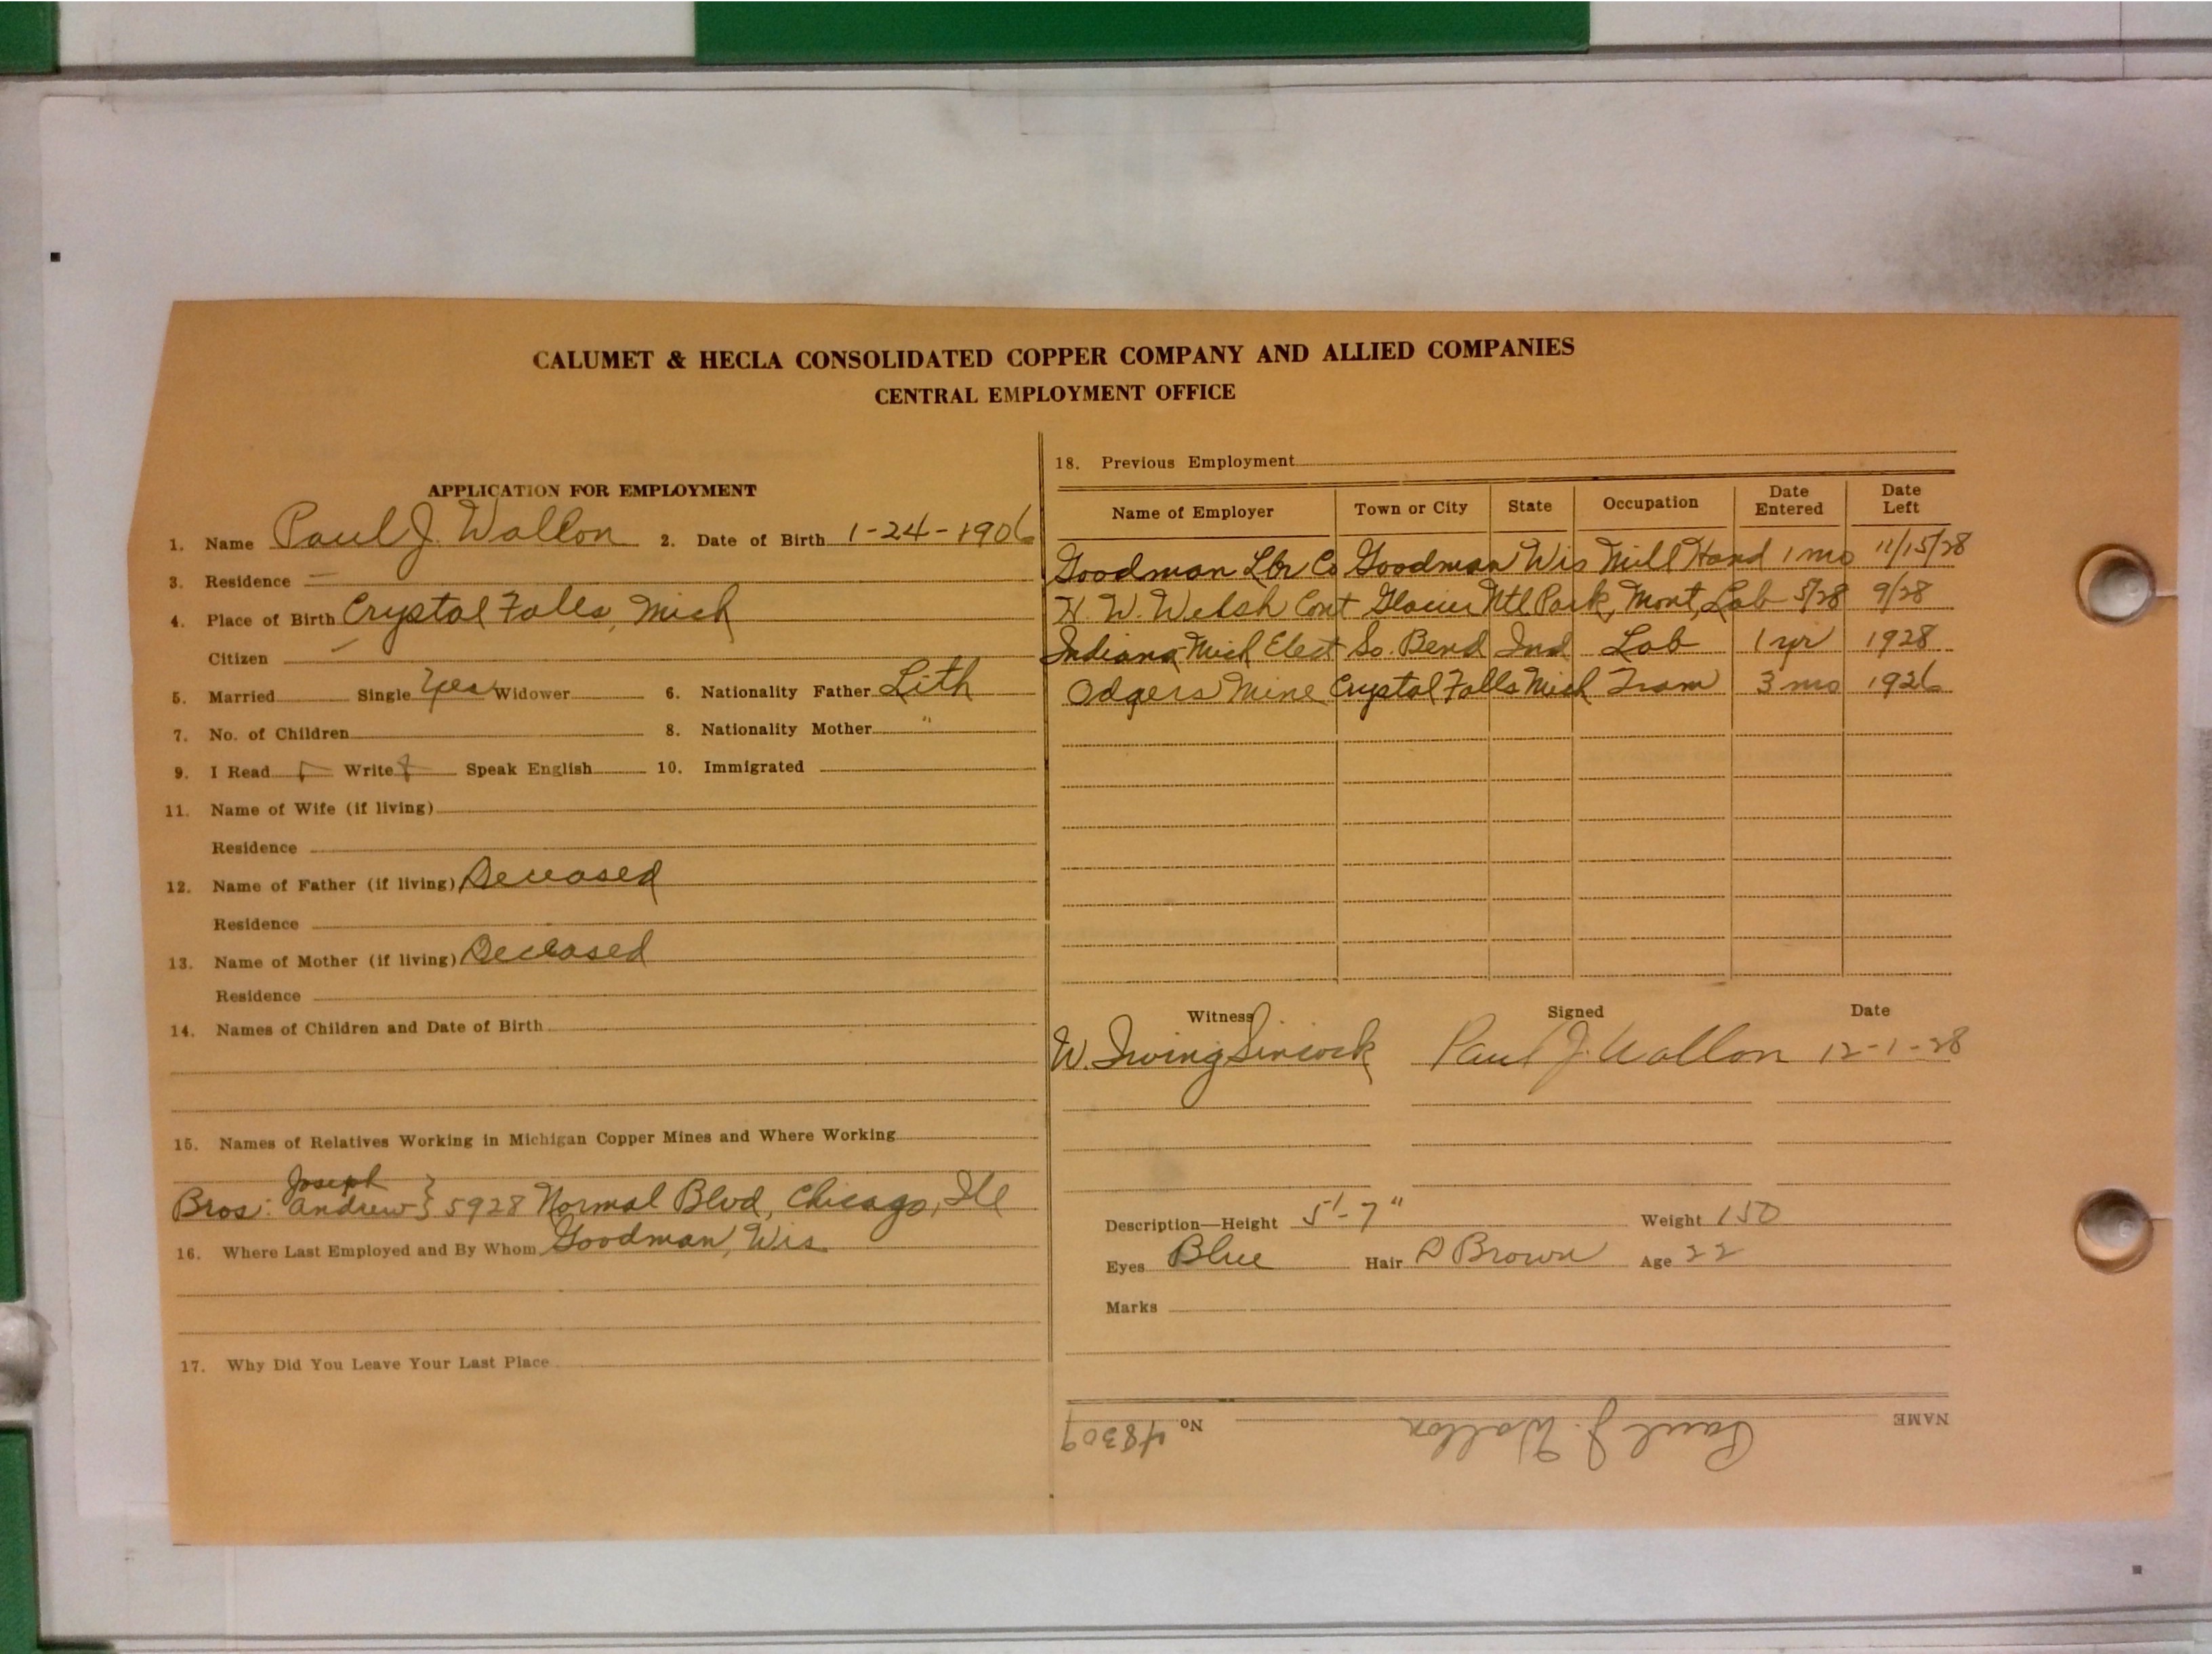 CALUMET & HECLA CONSOLIDATED COPPER COMPANY AND ALLIED COMPANIES
CENTRAL EMPLOYMENT OFFICE
APPLICATION FOR EMPLOYMENT
1. Name Paul J. Wallon 2. Date of Birth 1-24-1906
3. Residence —
4. Place of Birth Crystal Falls, Mich
Citizen
5. Married Single Yes Widower 6. Nationality Father Lith
7. No. of Children 8. Nationality Mother "
9. I Read Write Speak English 10. Immigrated
11. Name of Wife (if living)
Residence
12. Name of Father (if living) Deceased
Residence
13. Name of Mother (if living) Deceased
Residence
14. Names of Children and Date of Birth
15. Names of Relatives Working in Michigan Copper Mines and Where Working
Joseph
Bros: Andrew } 5928 Normal Blvd, Chicago, Ill
16. Where Last Employed and By Whom Goodman, Wis.
17. Why Did You Leave Your Last Place
18. Previous Employment
Name of Employer Town or City State Occupation Date Entered Date Left
Goodman Lbr Co Goodman Wis Mill Hand 1 mo 11/15/28
W. Welsh Cont Glacier Ntl Park, Mont, Lab 5/28 9/28
Indiana Mich Elect So. Bend Ind Lab 1 yr 1928
Odgers Mine Crystal Falls Mich Tram 3 mo 1926
Witness Signed Date
W. Irving Sincock Paul J. Wallon 12-1-28
Description—Height 5'-7" Weight 150
Eyes Blue Hair D Brown Age 22
Marks
NAME Paul J. Wallon No. 48309